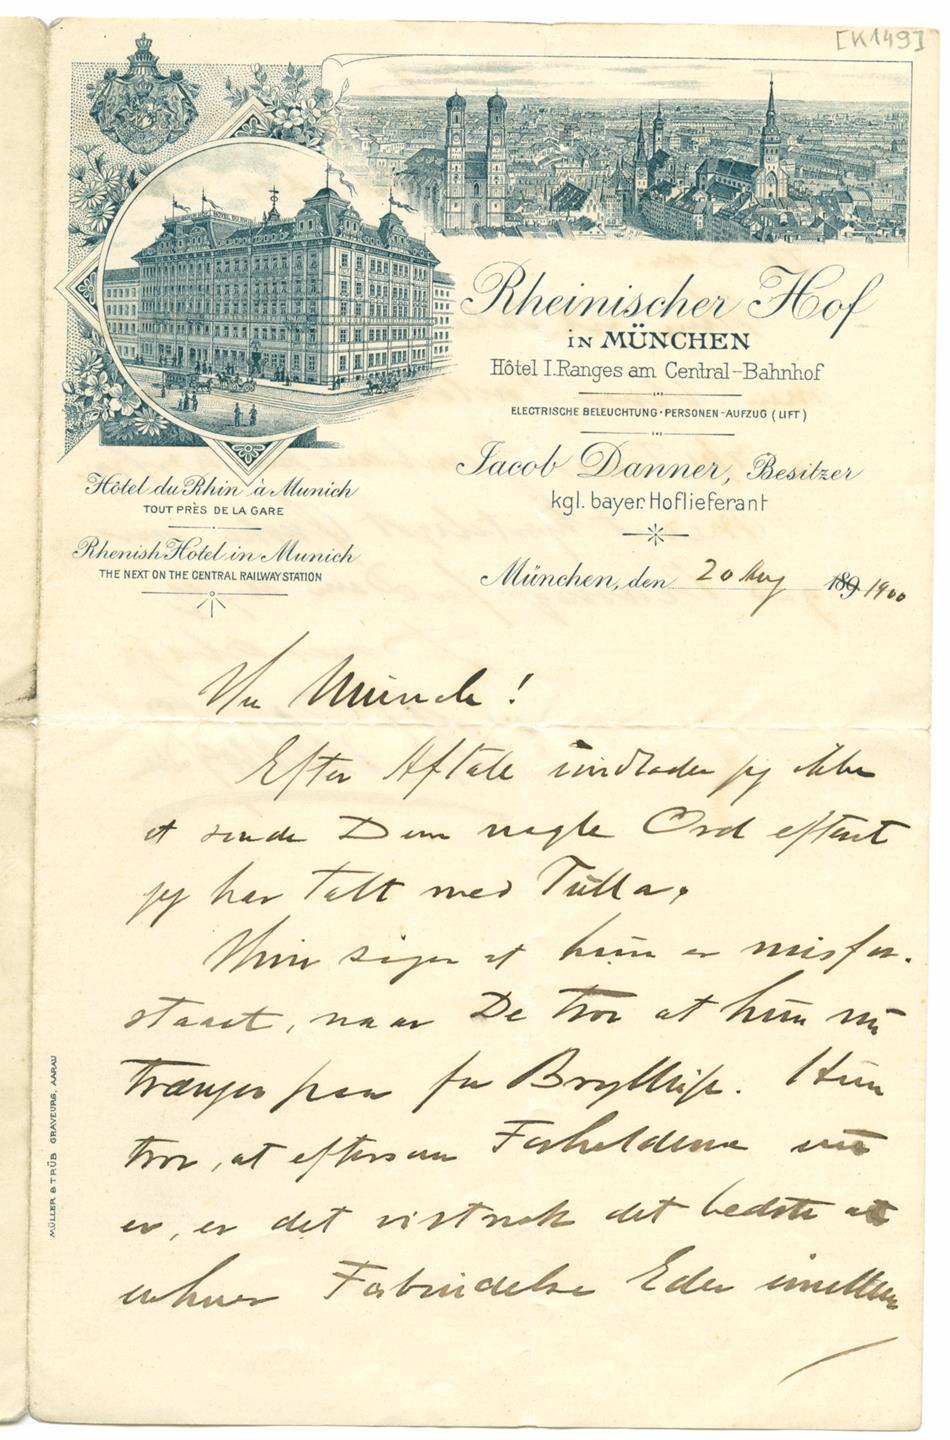 [K149]
Rheinischer Hof
IN MÜNCHEN
Hôtel I. Ranges am Central-Bahnhof
ELECTRISCHE BELEUCHTUNG · PERSONEN-AUFZUG (LIFT)
Jacob Danner, Besitzer
kgl. bayer. Hoflieferant
Hôtel du Rhin à Munich
TOUT PRÈS DE LA GARE
Rhenish Hotel in Munich
THE NEXT ON THE CENTRAL RAILWAY STATION
München, den 20 Aug 189 1900
Hr Munch!
Efter Aftale undlader jeg ikke
at sende Dem nogle Ord efterat
jeg har talt med Tulla.
Hun siger at hun er misfor-
staaet, naar De tror at hun nu
trænger paa for Bryllup. Hun
tror, at eftersom Forholdene nu
er, er det vistnok det bedste at
enhver Forbindelse Eder imellem
MÜLLER & TRÜB GRAVEURS, AARAU